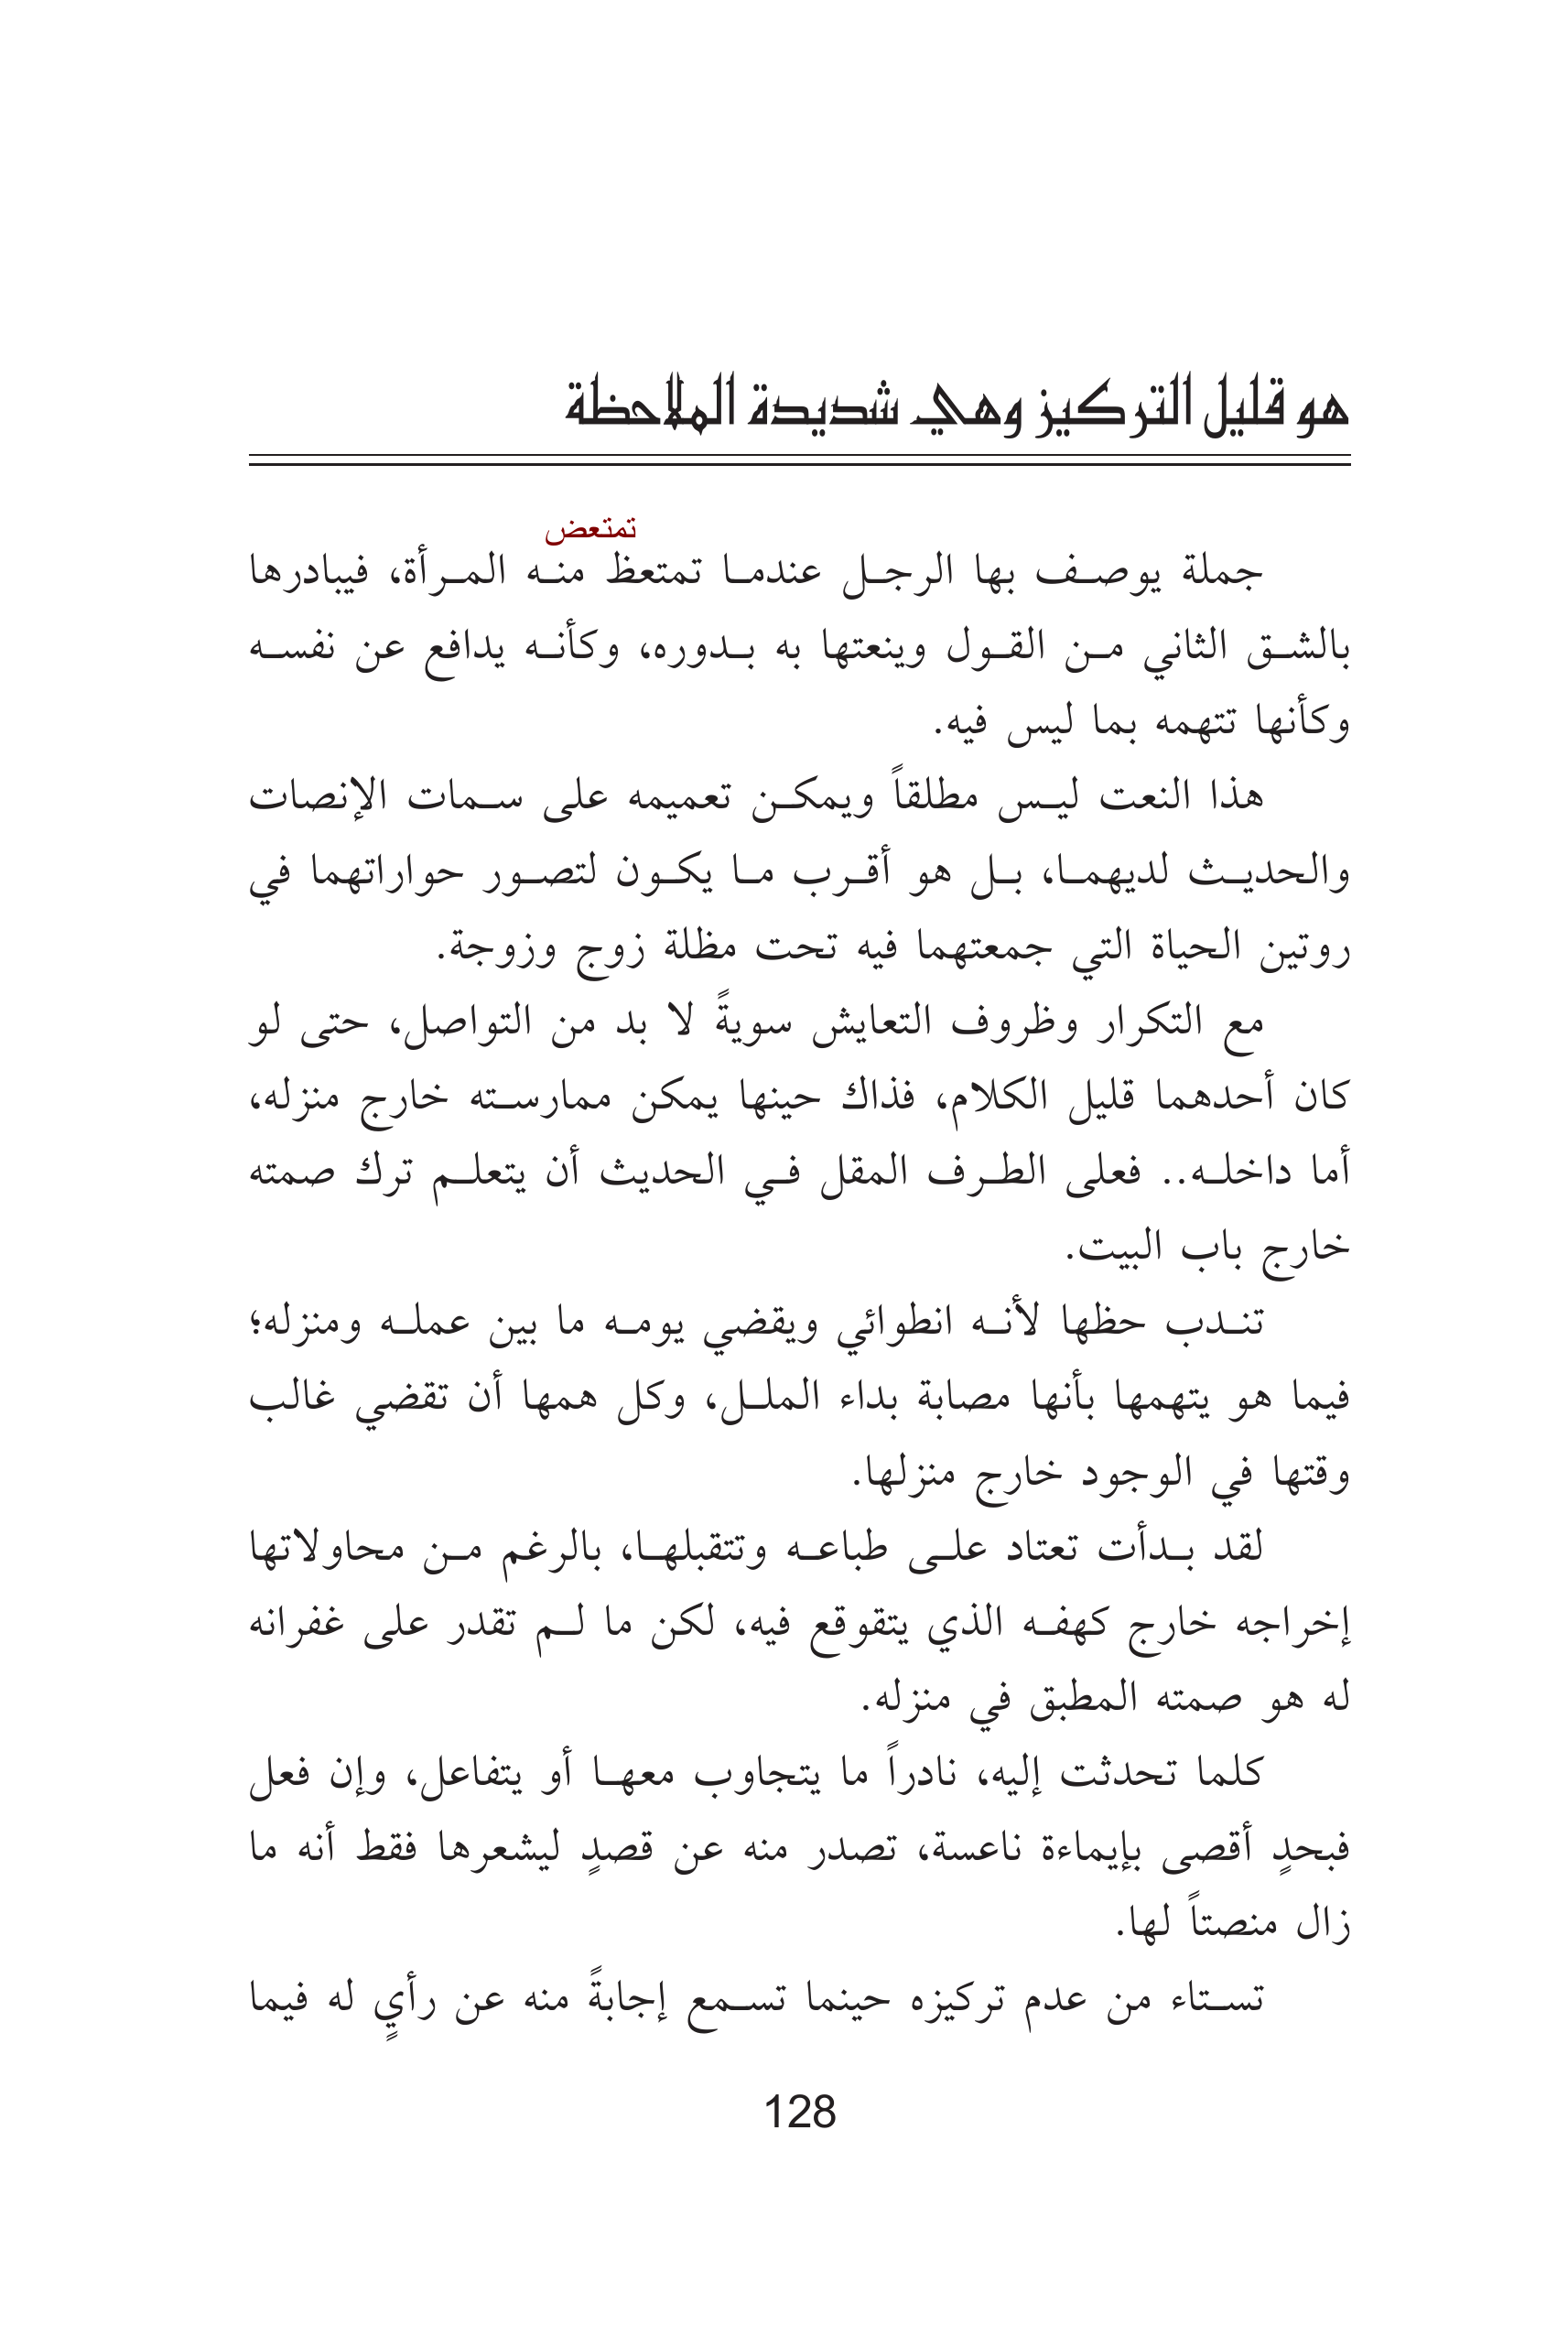 هو قليل التركيز وهي شديدة الملاحظة
تمتعض
جملة يوصف بها الرجل عندما تمتعظ منه المرأة، فيبادرها
بالشق الثاني من القول وينعتها به بدوره، وكأنه يدافع عن نفسه
وكأنها تتهمه بما ليس فيه.
هذا النعت ليس مطلقاً ويمكن تعميمه على سمات الإنصات
والحديث لديهما، بل هو أقرب ما يكون لتصور حواراتهما في
روتين الحياة التي جمعتهما فيه تحت مظلة زوج وزوجة.
مع التكرار وظروف التعايش سويةً لا بد من التواصل، حتى لو
كان أحدهما قليل الكلام، فذاك حينها يمكن ممارسته خارج منزله،
أما داخله.. فعلى الطرف المقل في الحديث أن يتعلم ترك صمته
خارج باب البيت.
تندب حظها لأنه انطوائي ويقضي يومه ما بين عمله ومنزله؛
فيما هو يتهمها بأنها مصابة بداء الملل، وكل همها أن تقضي غالب
وقتها في الوجود خارج منزلها.
لقد بدأت تعتاد على طباعه وتتقبلها، بالرغم من محاولاتها
إخراجه خارج كهفه الذي يتقوقع فيه، لكن ما لم تقدر على غفرانه
له هو صمته المطبق في منزله.
كلما تحدثت إليه، نادراً ما يتجاوب معها أو يتفاعل، وإن فعل
فبحدٍ أقصى بإيماءة ناعسة، تصدر منه عن قصدٍ ليشعرها فقط أنه ما
زال منصتاً لها.
تستاء من عدم تركيزه حينما تسمع إجابةً منه عن رأيٍ له فيما
128